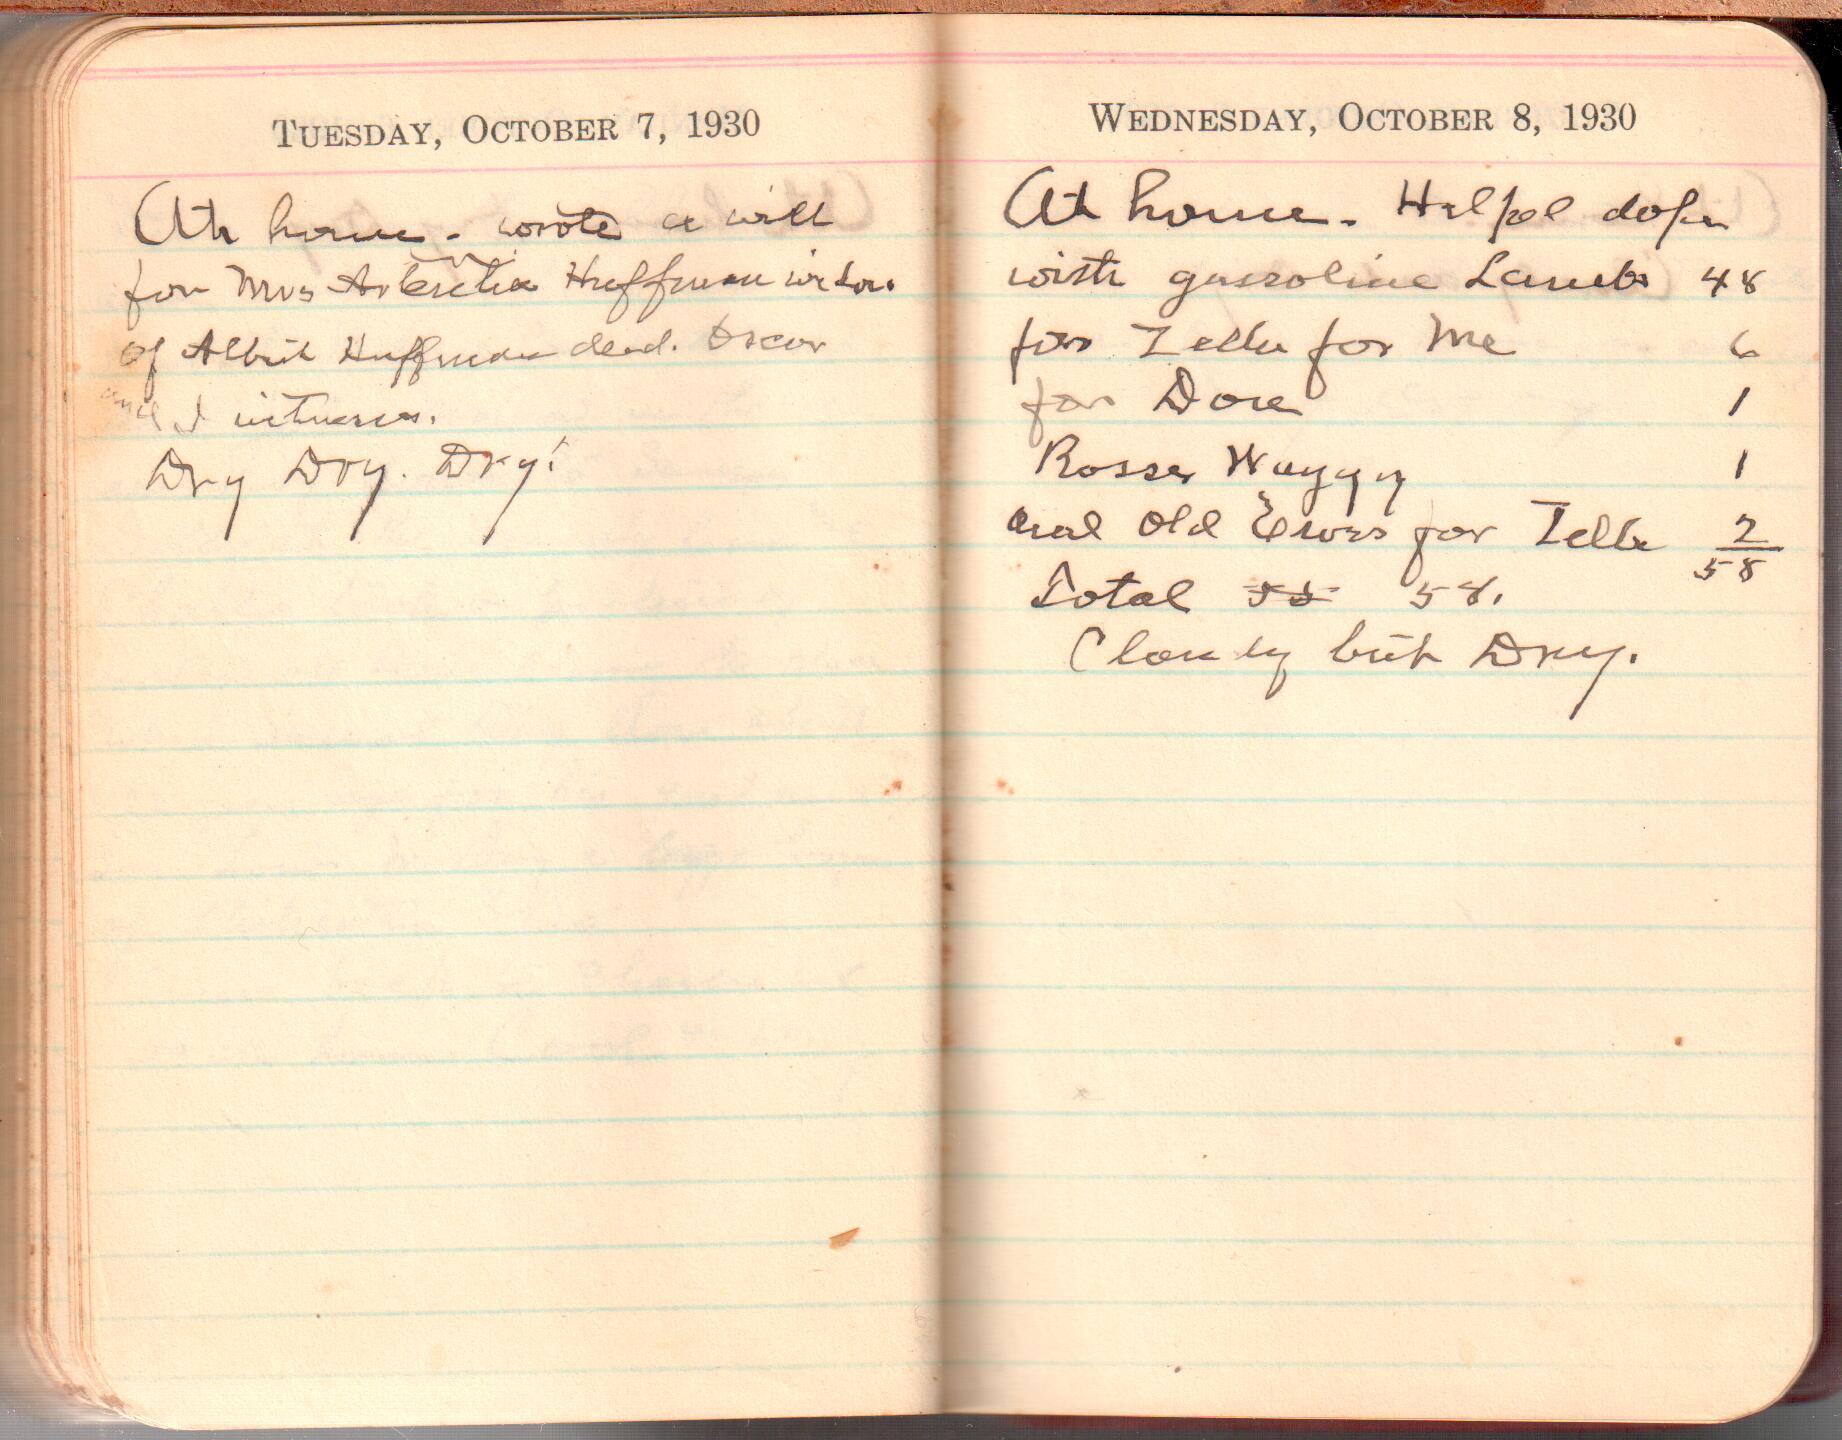 TUESDAY, OCTOBER 7, 1930
At home - wrote a will
for Mrs Huffman widow
of Albert Huffman dead. Oscar
and I witness.
Dry Dry. Dry!
WEDNESDAY, OCTOBER 8, 1930
At home - Helped dope
with gassoline Lambs 48
for Zella for Me 6
for Dore 1
Rosse Waggy 1
and Old Ewes for Zella 2
58
Total 58.
Cloudy but Dry.